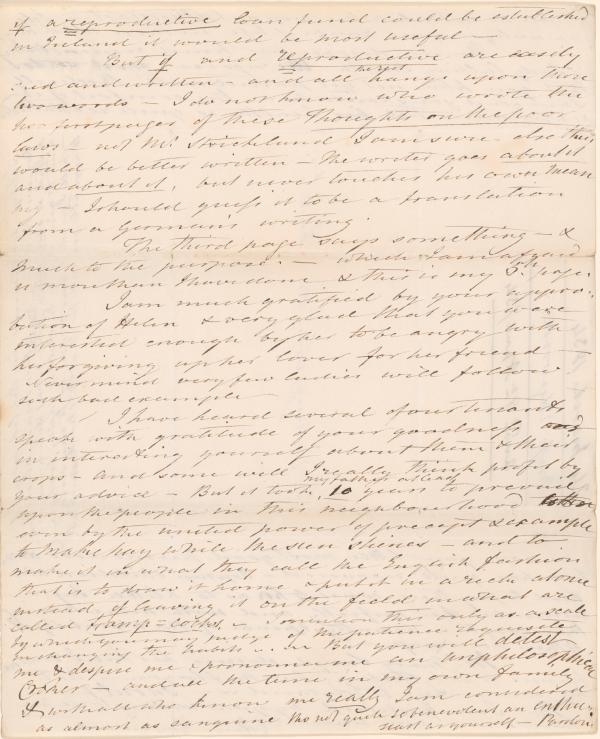 if a reproductive loan fund could be established
in Ireland it would be most useful –
But if and reproductive are easily
said and written – and all the rest hangs upon those
two words – I do not know who wrote the
two first pages of these Thoughts on the poor
laws – not Mr Strickland I am sure – else this
would be better written – The writer goes about it
and about it, but never touches his own mean
ing – I should guess it to be a translation
from a German's writing.
The third page says something – &
much to the purpose – which I am afraid
is more than I have done & this is my 5th page.
I am much gratified by your appro-
bation of Helen & very glad that you were
interested enough by her to be angry with
her for giving up her lover for her friend –
Never mind very few ladies will follow
such bad example –
I have heard several of our tenants
speak with gratitude of your goodness
in interesting yourself about them & their
crops – and some will I really think profit by
your advice – But it took my father at least 10 years to prevail
upon the people in this neighbourhood
even by the united power of precept & example
to make hay while the sun shines – and to
make it in what they call the English fashion
that is to draw it home & put it in a reek at once
instead of leaving it on the field in what are
called tramp=cocks. – I mention this only as a scale
by which you may judge of the patience requisite
in changing the habits But you will detest
me & despise me & pronounce me an unphilosophical
– and all the time in my own family
& with all who know me really I am considered
as almost as sanguine tho not quite so benevolent an enthu-
siast as yourself – Pardon